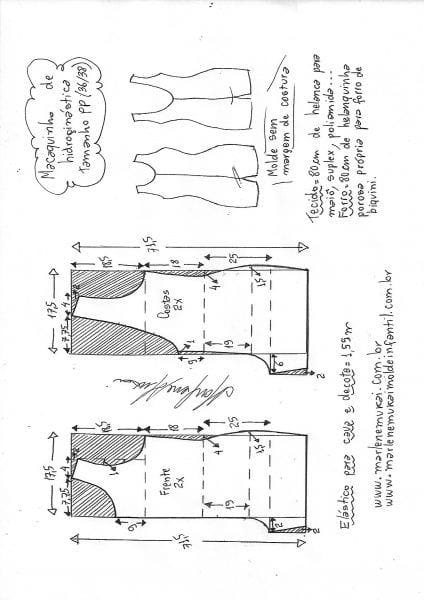 Macaquinho de
hidroginástica
Tamanho PP (36/38)
Molde sem
margem de costura
Tecido = 80cm de helanca para
maiô, suplex, poliamida...
Forro = 80cm de helanquinha
porosa própria para forro de
biquini.
73,5
18,5
18
25
17,5
4
2
7,75
Costas
2x
4
1,5
1
9
19
6
2
73,5
18,5
18
25
17,5
4
2
7,75
1
Frente
2x
4
1,5
9
19
2
2
73,5
Elástico para cava e decote = 1,55m
www.marlenemukai.com.br
www.marlenemukaimoldeinfantil.com.br